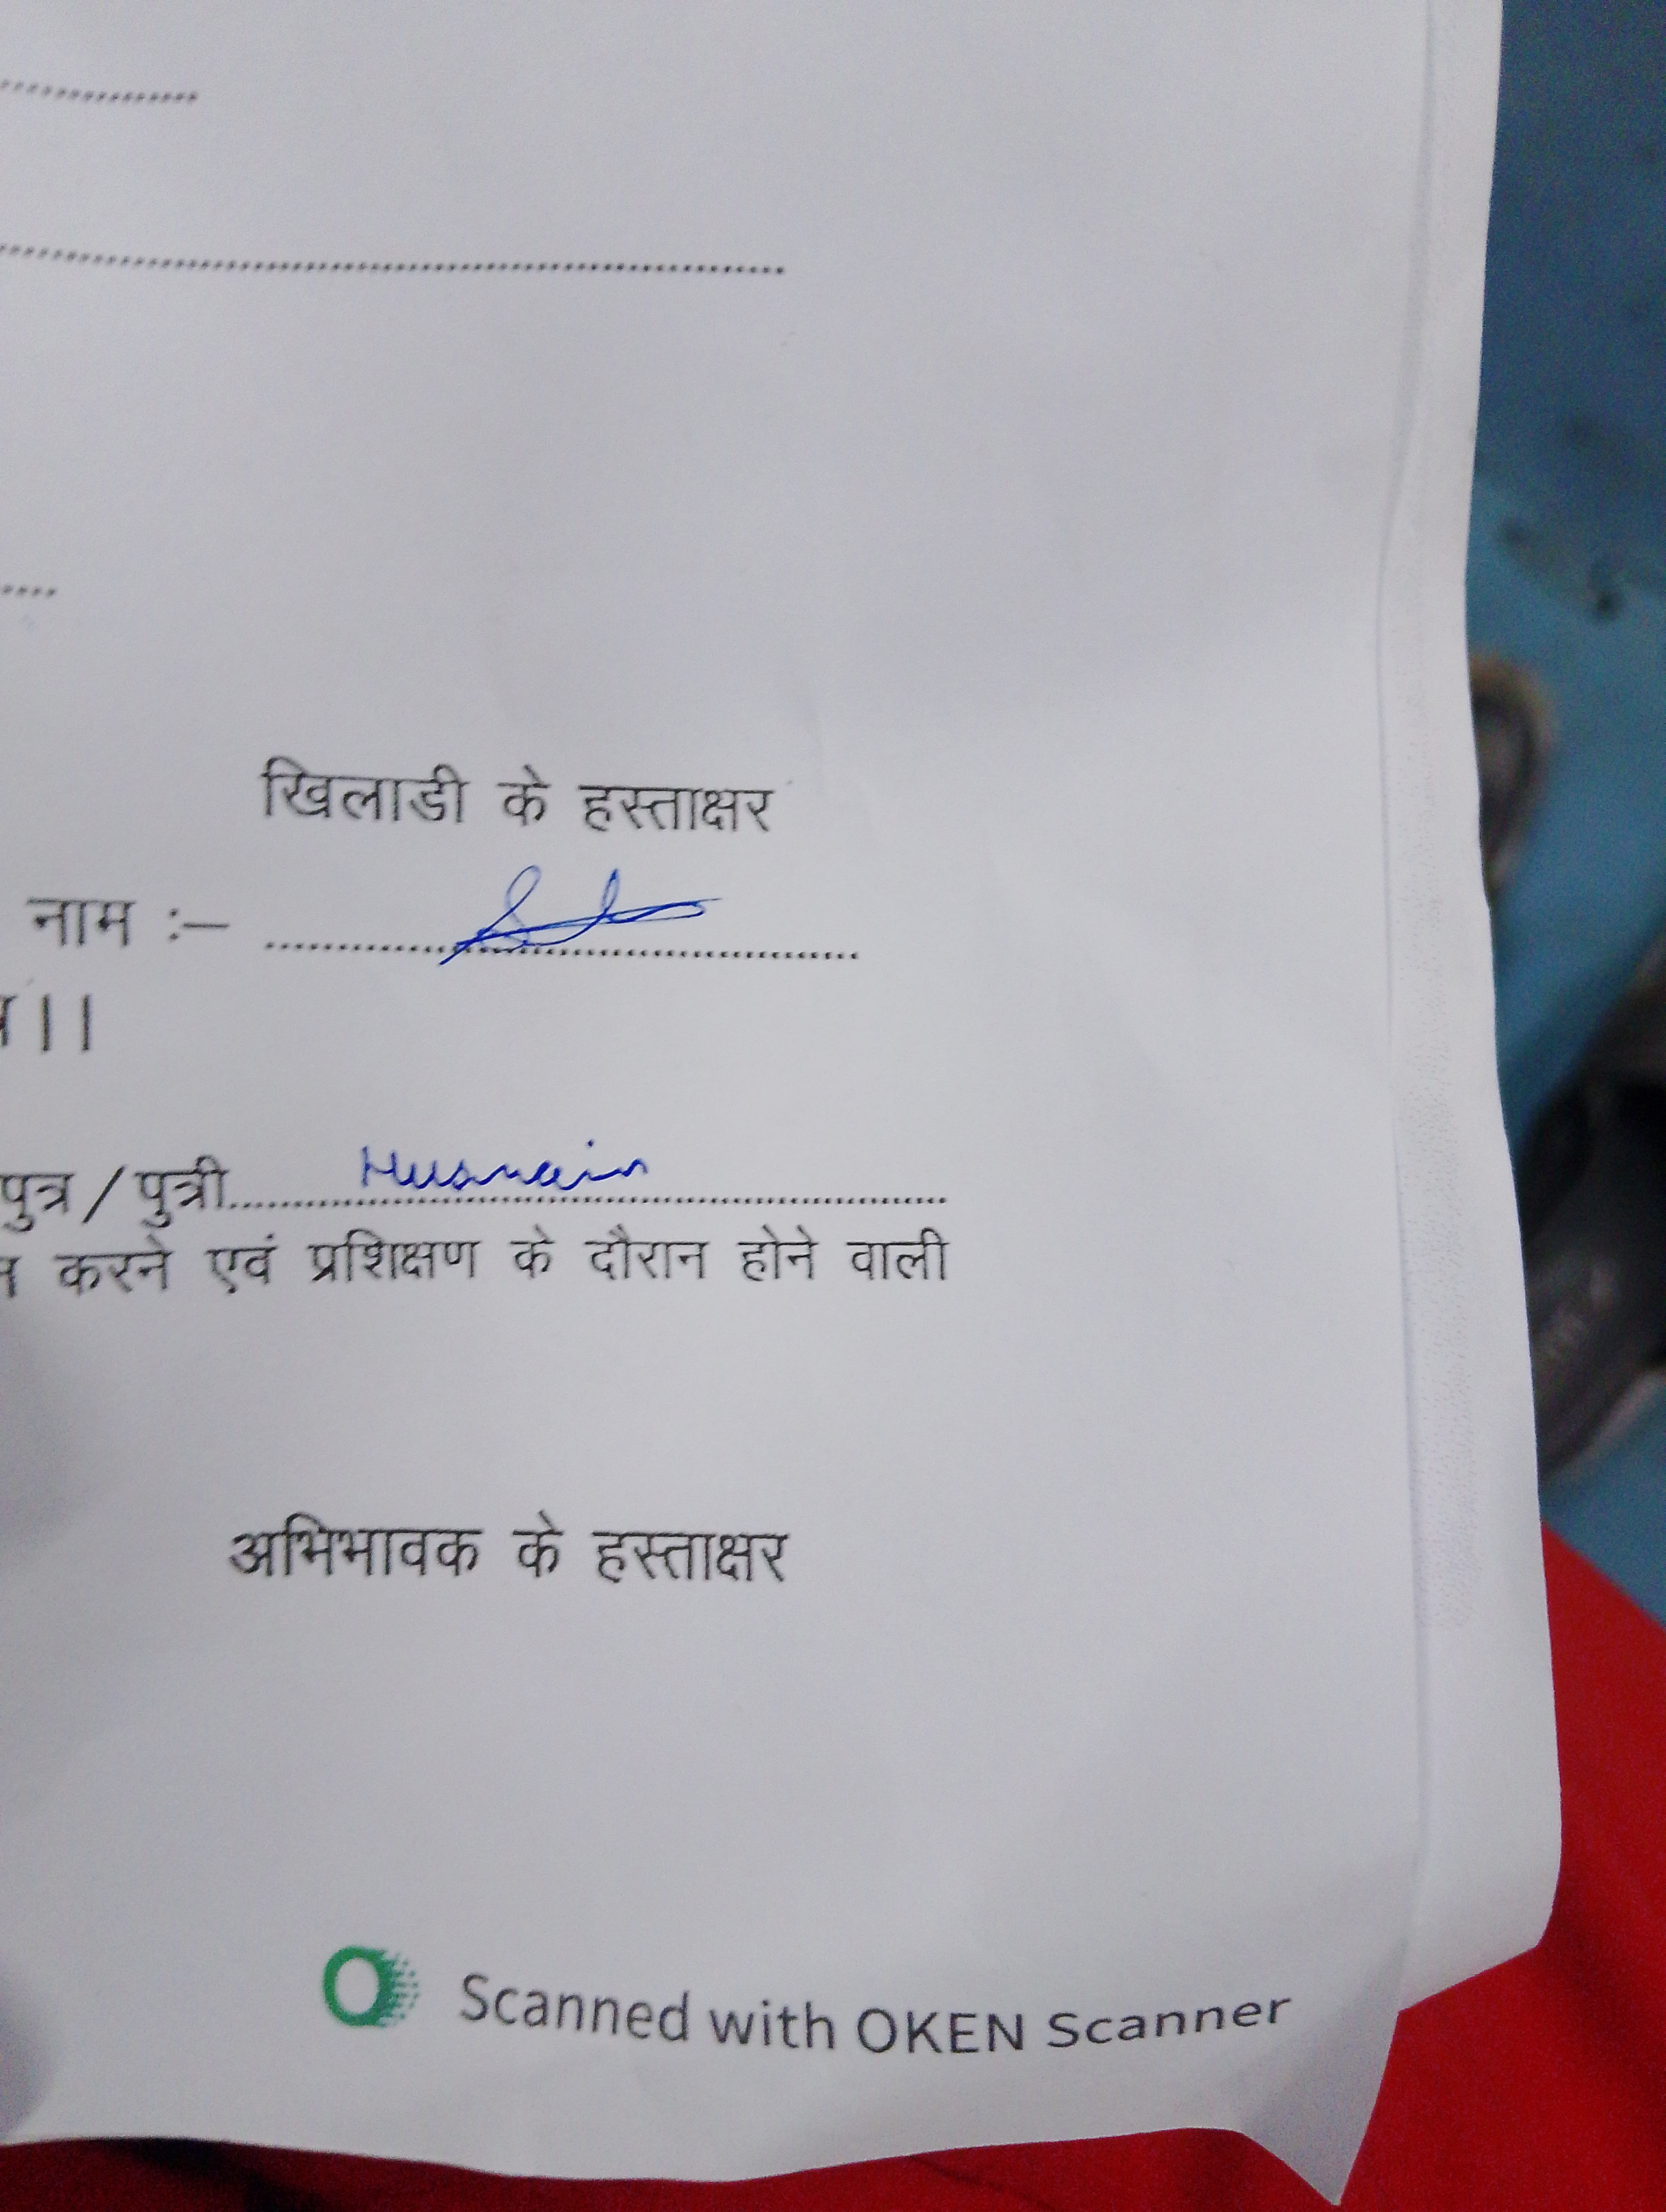 खिलाडी के हस्ताक्षर
नाम :– ....................
।।
पुत्र / पुत्री.......... Husnain ..........
करने एवं प्रशिक्षण के दौरान होने वाली
अभिभावक के हस्ताक्षर
Scanned with OKEN Scanner